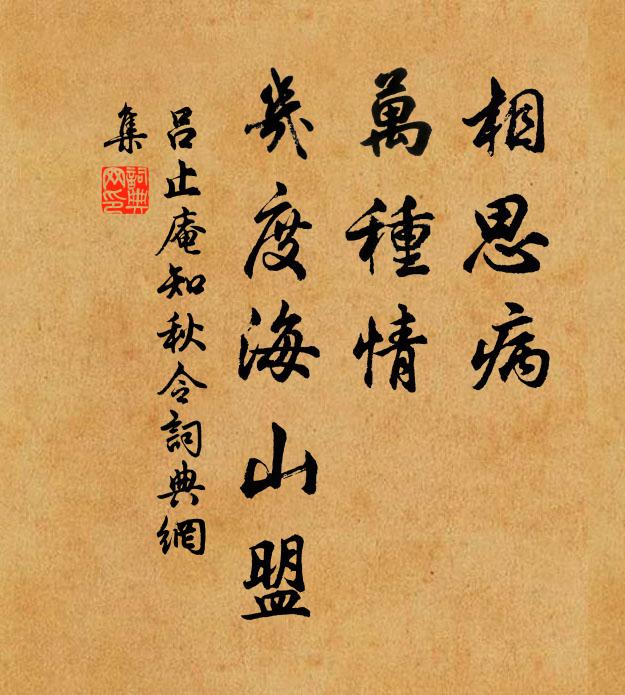 相思病
萬種情
幾度海山盟
呂止庵知秋令詞典網
集
詞典網印